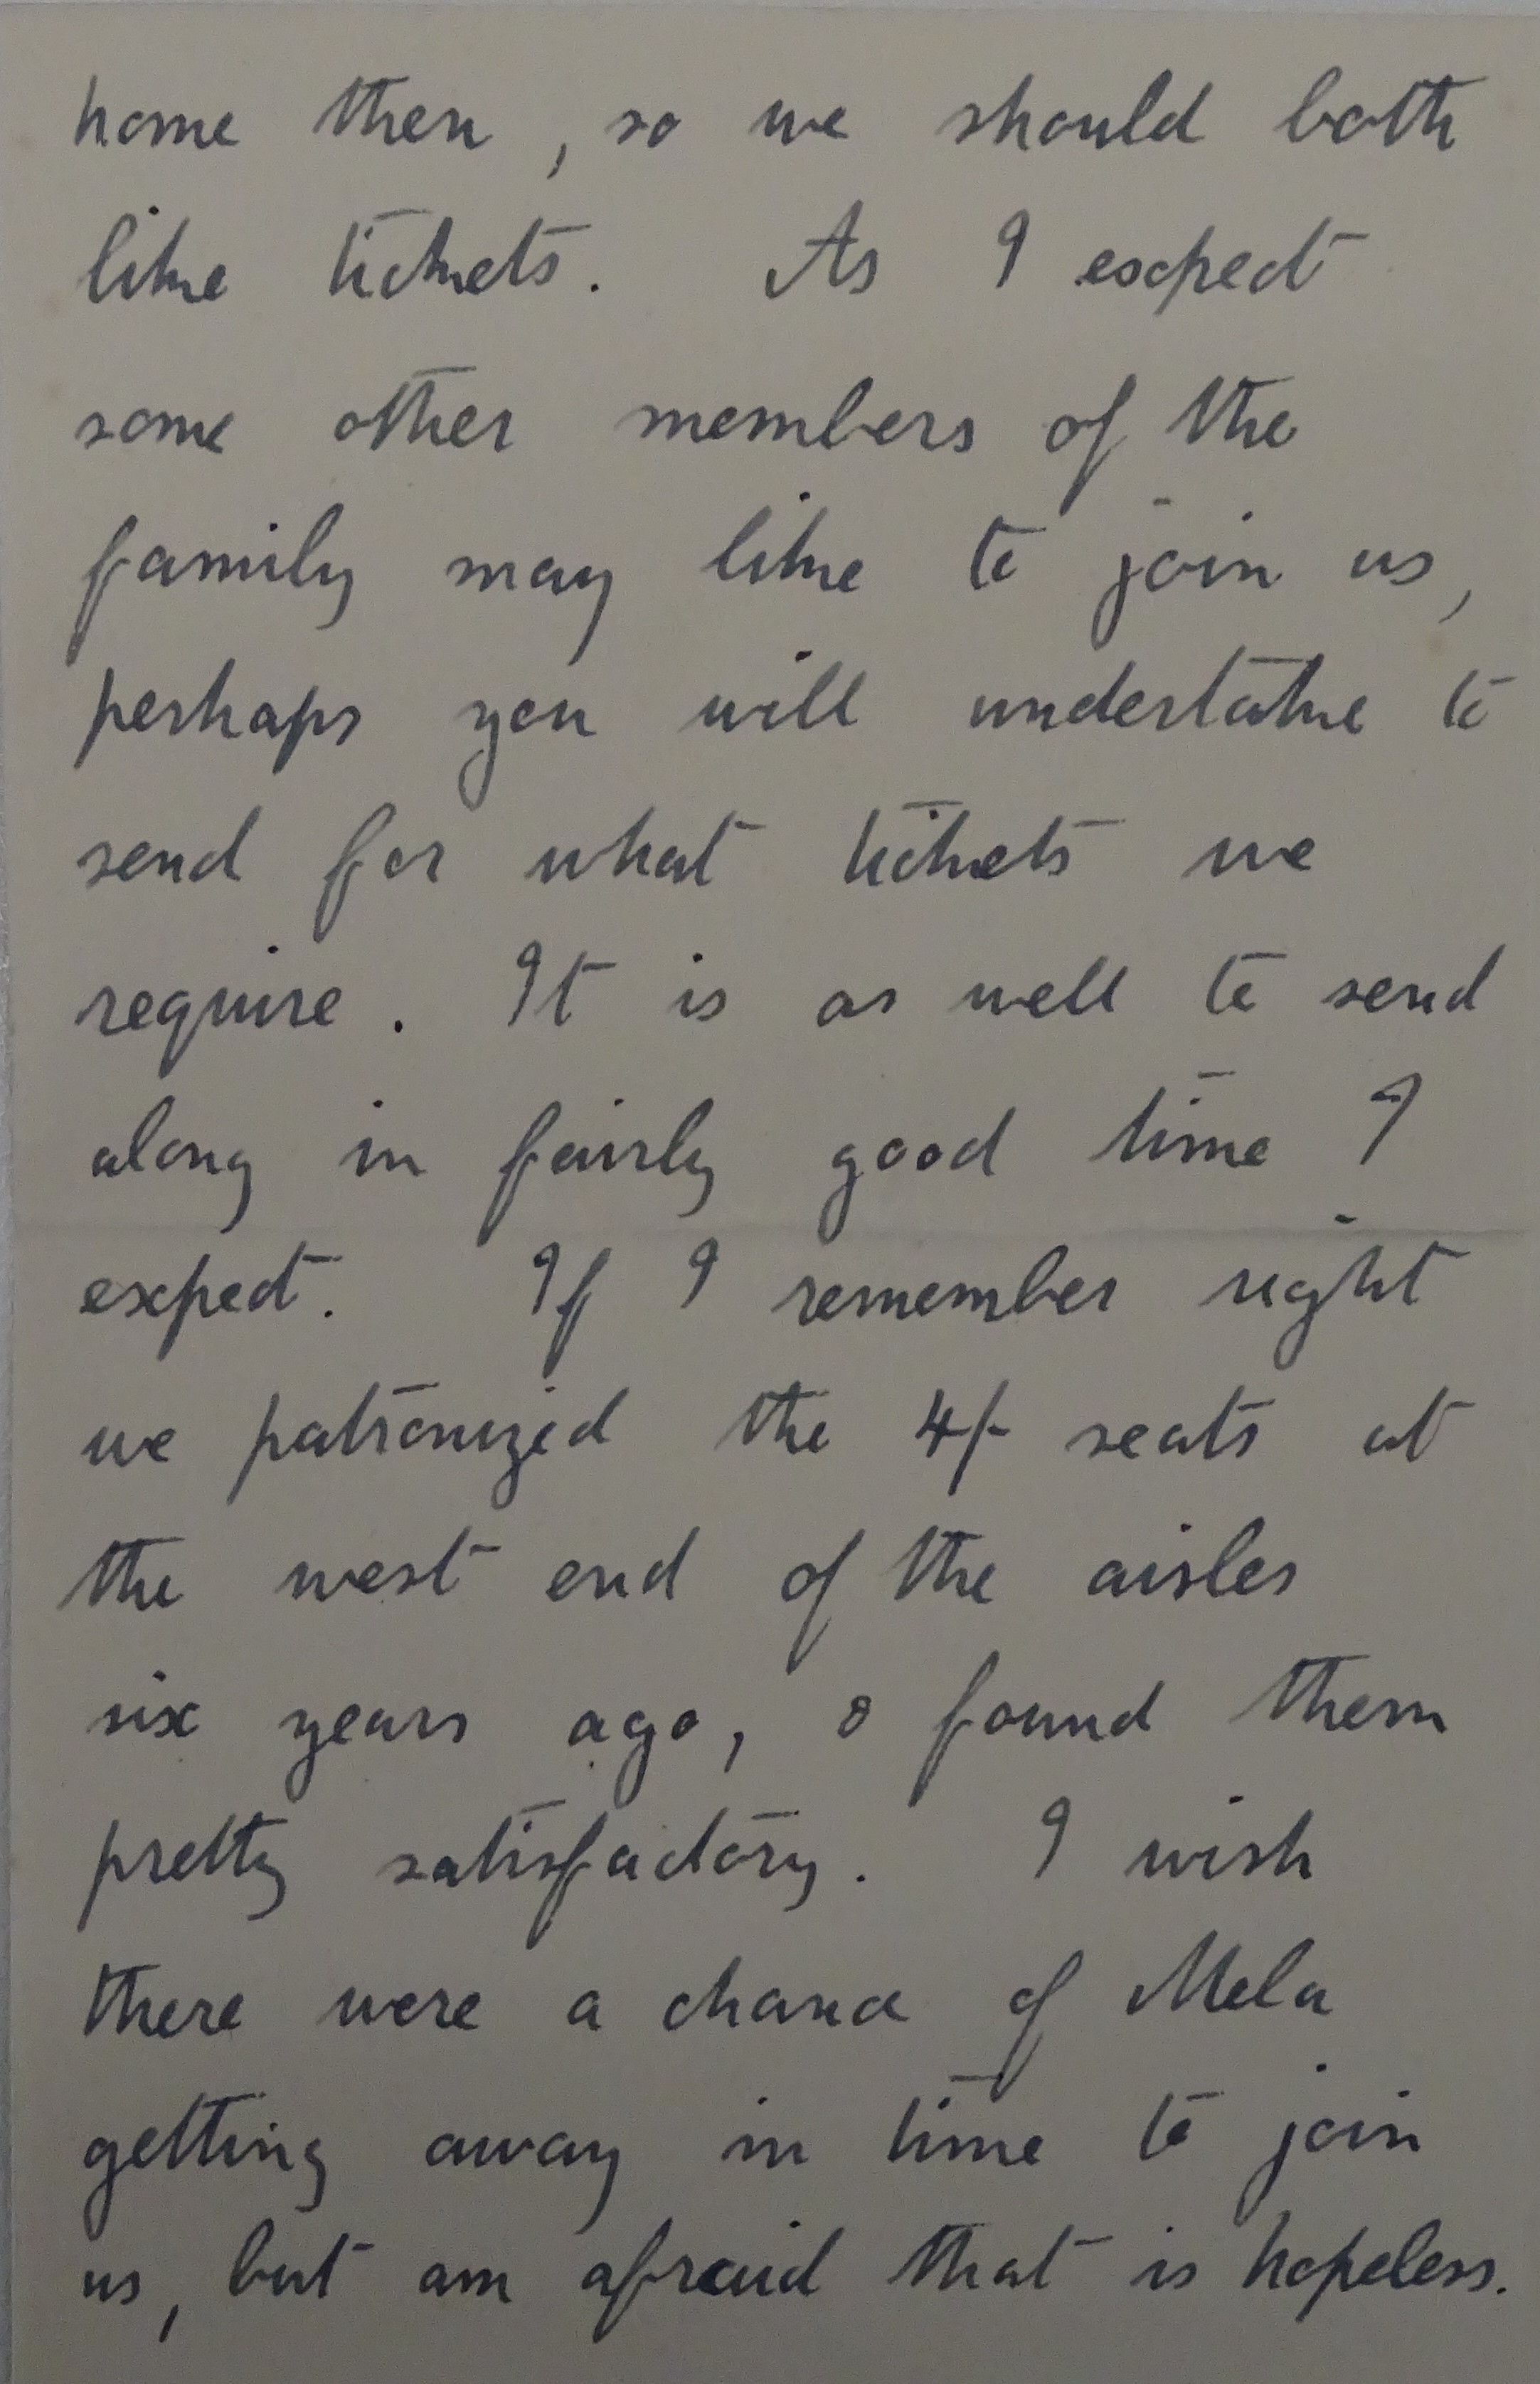 home then, so we should both
like tickets. As I expect
some other members of the
family may like to join us,
perhaps you will undertake to
send for what tickets we
require. It is as well to send
along in fairly good time I
expect. If I remember right
we patronized the 4/- seats at
the west end of the aisles
six years ago, & found them
pretty satisfactory. I wish
there were a chance of Mela
getting away in time to join
us, but am afraid that is hopeless.